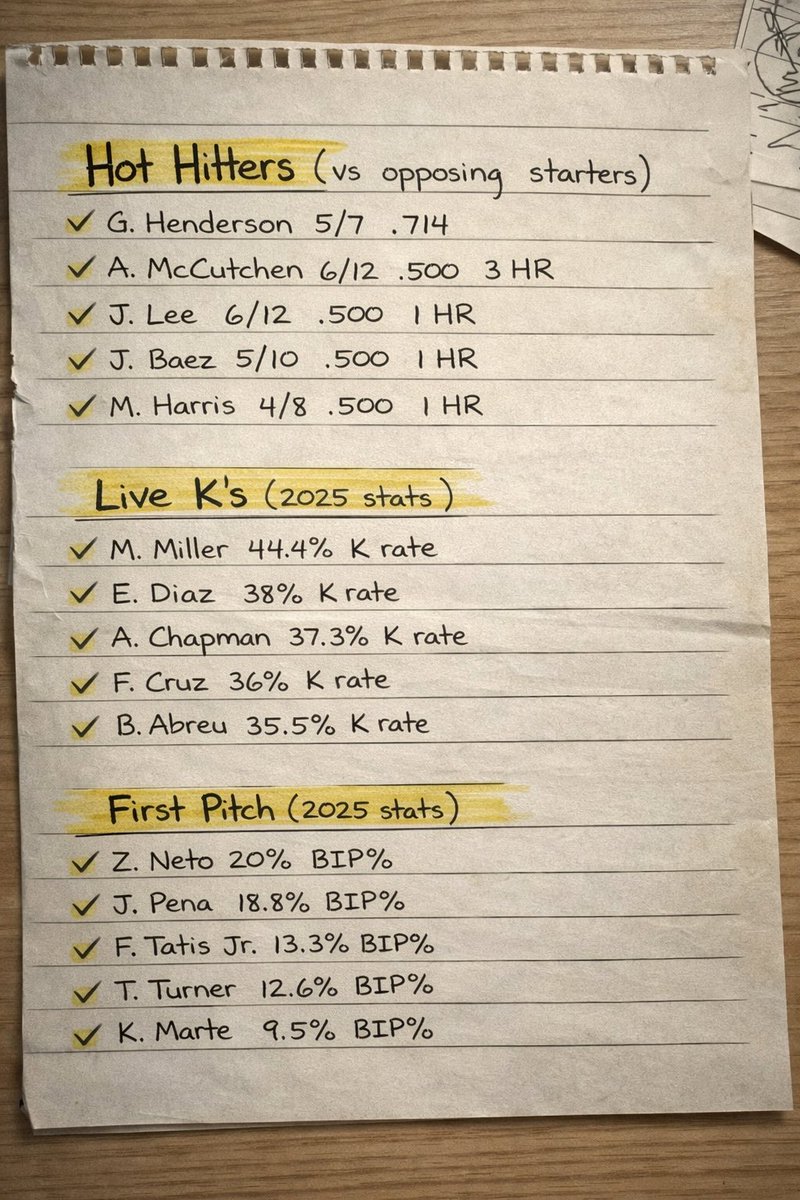 Hot Hitters (vs opposing starters)
✓ G. Henderson 5/7 .714
✓ A. McCutchen 6/12 .500 3 HR
✓ J. Lee 6/12 .500 1 HR
✓ J. Baez 5/10 .500 1 HR
✓ M. Harris 4/8 .500 1 HR
Live K's (2025 stats)
✓ M. Miller 44.4% K rate
✓ E. Diaz 38% K rate
✓ A. Chapman 37.3% K rate
✓ F. Cruz 36% K rate
✓ B. Abreu 35.5% K rate
First Pitch (2025 stats)
✓ Z. Neto 20% BIP%
✓ J. Pena 18.8% BIP%
✓ F. Tatis Jr. 13.3% BIP%
✓ T. Turner 12.6% BIP%
✓ K. Marte 9.5% BIP%